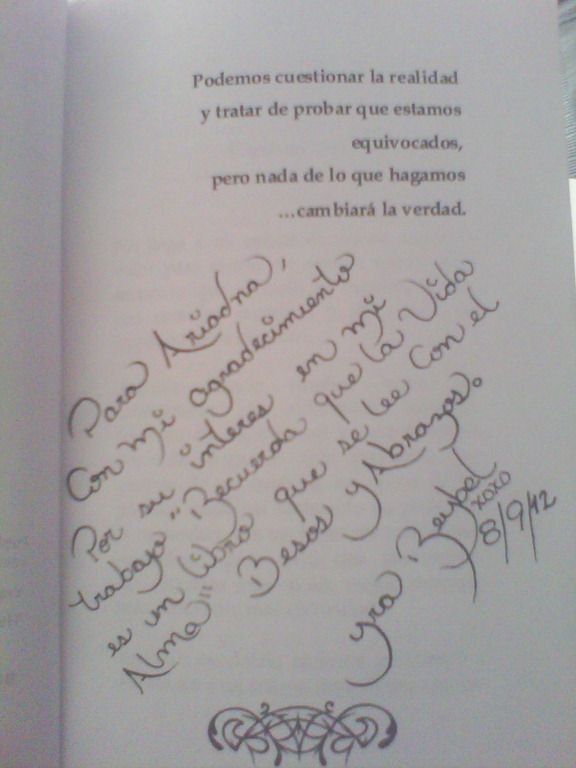 Podemos cuestionar la realidad
y tratar de probar que estamos
equivocados,
pero nada de lo que hagamos
...cambiará la verdad.
Para Ariadna,
Con mi agradecimiento
Por su interes en mi
trabajo "Recuerda que la Vida
es un libro que se lee con el
Alma" Besos y Abrazos.
Yra Beybel
xoxo
8/9/12